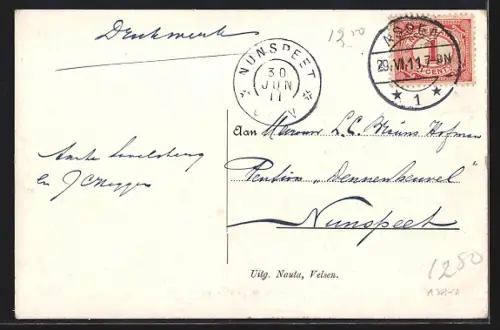 Drukwerk
1200
NUNSPEET
30
JUN
11
V
29.VI.11. 7-8N
1
1
CENT
Aan Mevrouw L.C. Bruins Hofman
Pension „Dennenheuvel"
Nunspeet
en J C
Uitg. Nauta, Velsen.
1280